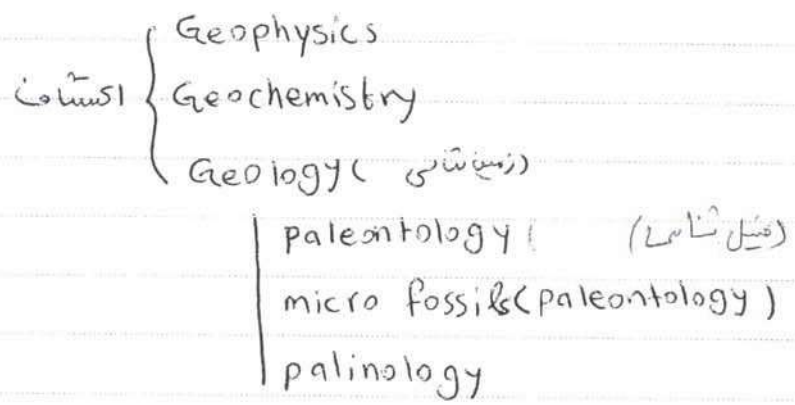 Geophysics
اکتشاف { Geochemistry
Geology (زمین شناسی)
paleontology (فسیل شناسی)
micro fossils (paleontology)
palinology